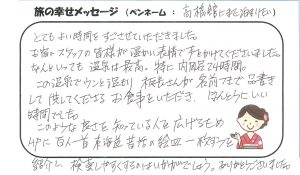 旅の幸せメッセージ（ペンネーム：高橋館にまた泊まりたい）
とてもよい時間をすごさせていただきました。
お宿のスタッフの皆様が温かい表情で声をかけてくださいました。
なんといっても温泉は最高。特に内風呂で24時間。
この温泉でウンと温まり、板長さんが名前までで品書き
して供してくださるお食事をいただき、ほんとうにいい
時間でした。
このような良さを知っている人を広げるため
HPに百人一首
紹介し、検索しやすくするのはいかがでしょう。ありがとうございました。